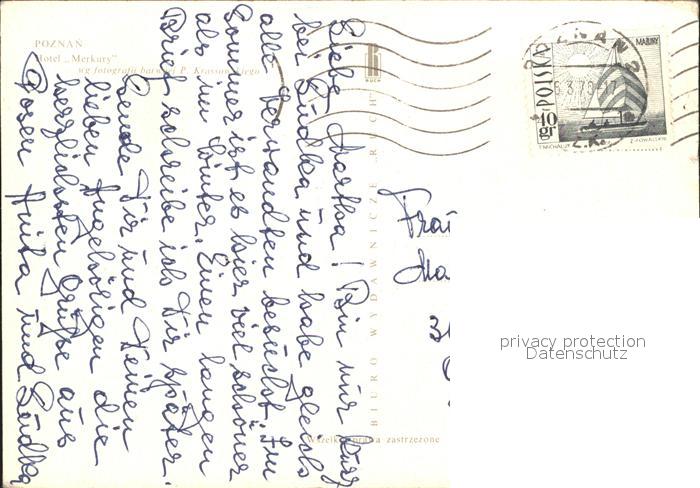 POZNAŃ
Hotel „Merkury"
wg fotografii barwnej P. Krassowskiego
RUCH
BIURO WYDAWNICZE „RUCH"
Wszelkie prawa zastrzeżone
Liebe Martha! Bin nur kurz
bei Ludka und habe gleich
alle Verwandten besucht. Im
Sommer ist es hier viel schöner
als im Winter. Einen langen
Brief schreibe ich Dir später.
Sende Dir und Deinen
lieben Angehörigen die
herzlichsten Grüße aus
Posen Anita und Ludka
POZNAŃ 2
6.3.79-17
MAZURY
POLSKA
10 gr
T. MICHALUK
Z. KOWALSKI
Frau
Ma
privacy protection
Datenschutz